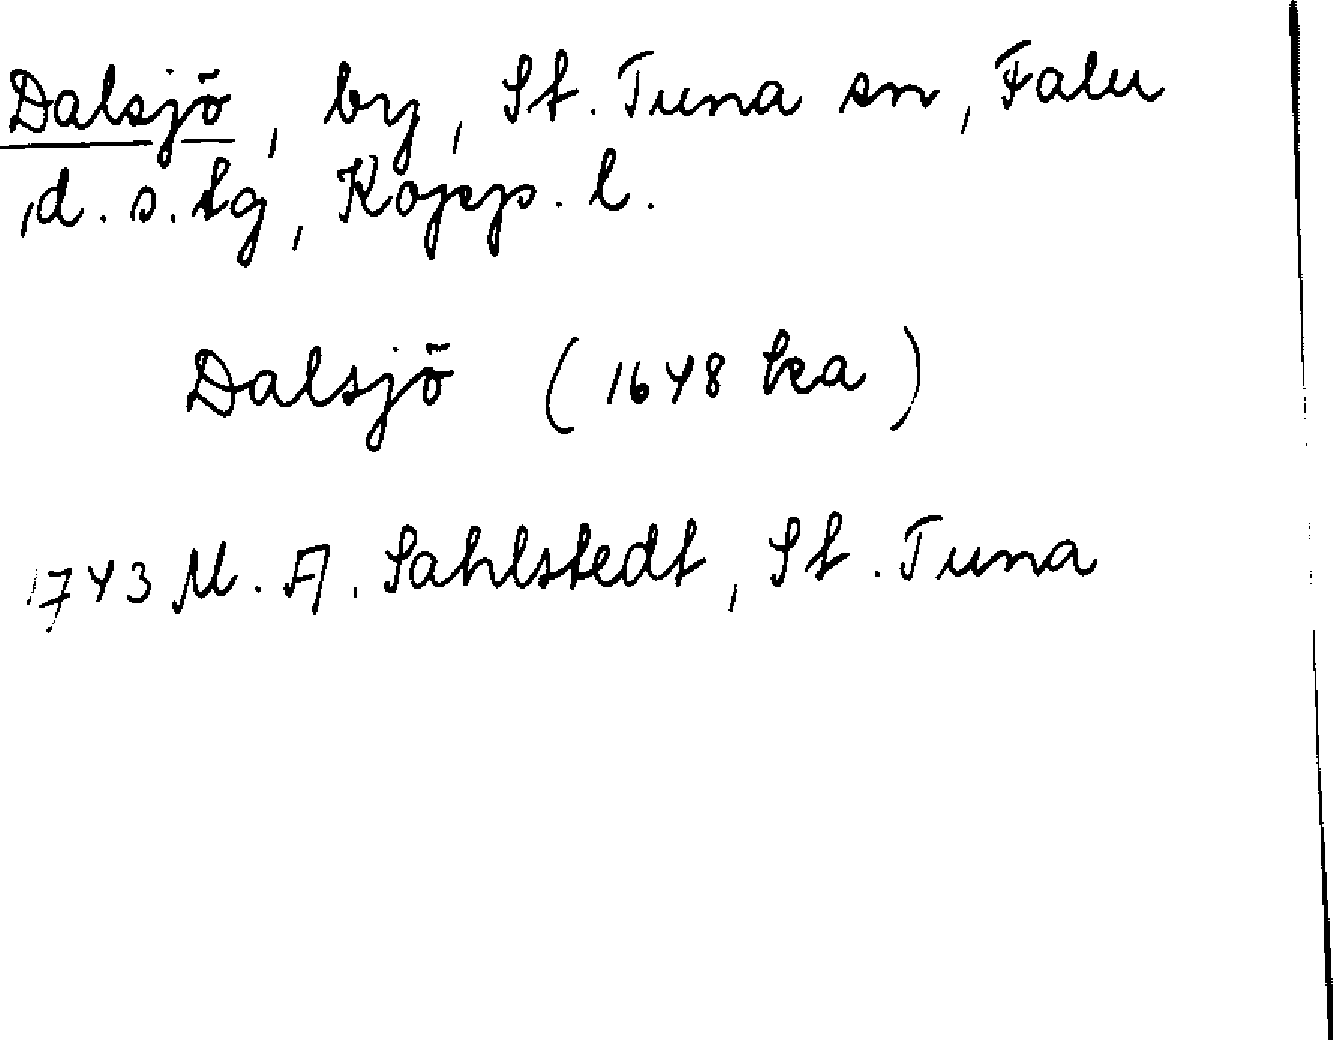 Dalsjö, by, St. Tuna sn, Falu
d. s. tg, Kopp. l.
Dalsjö (1648 ka)
1743 M. A. Sahlstedt, St. Tuna